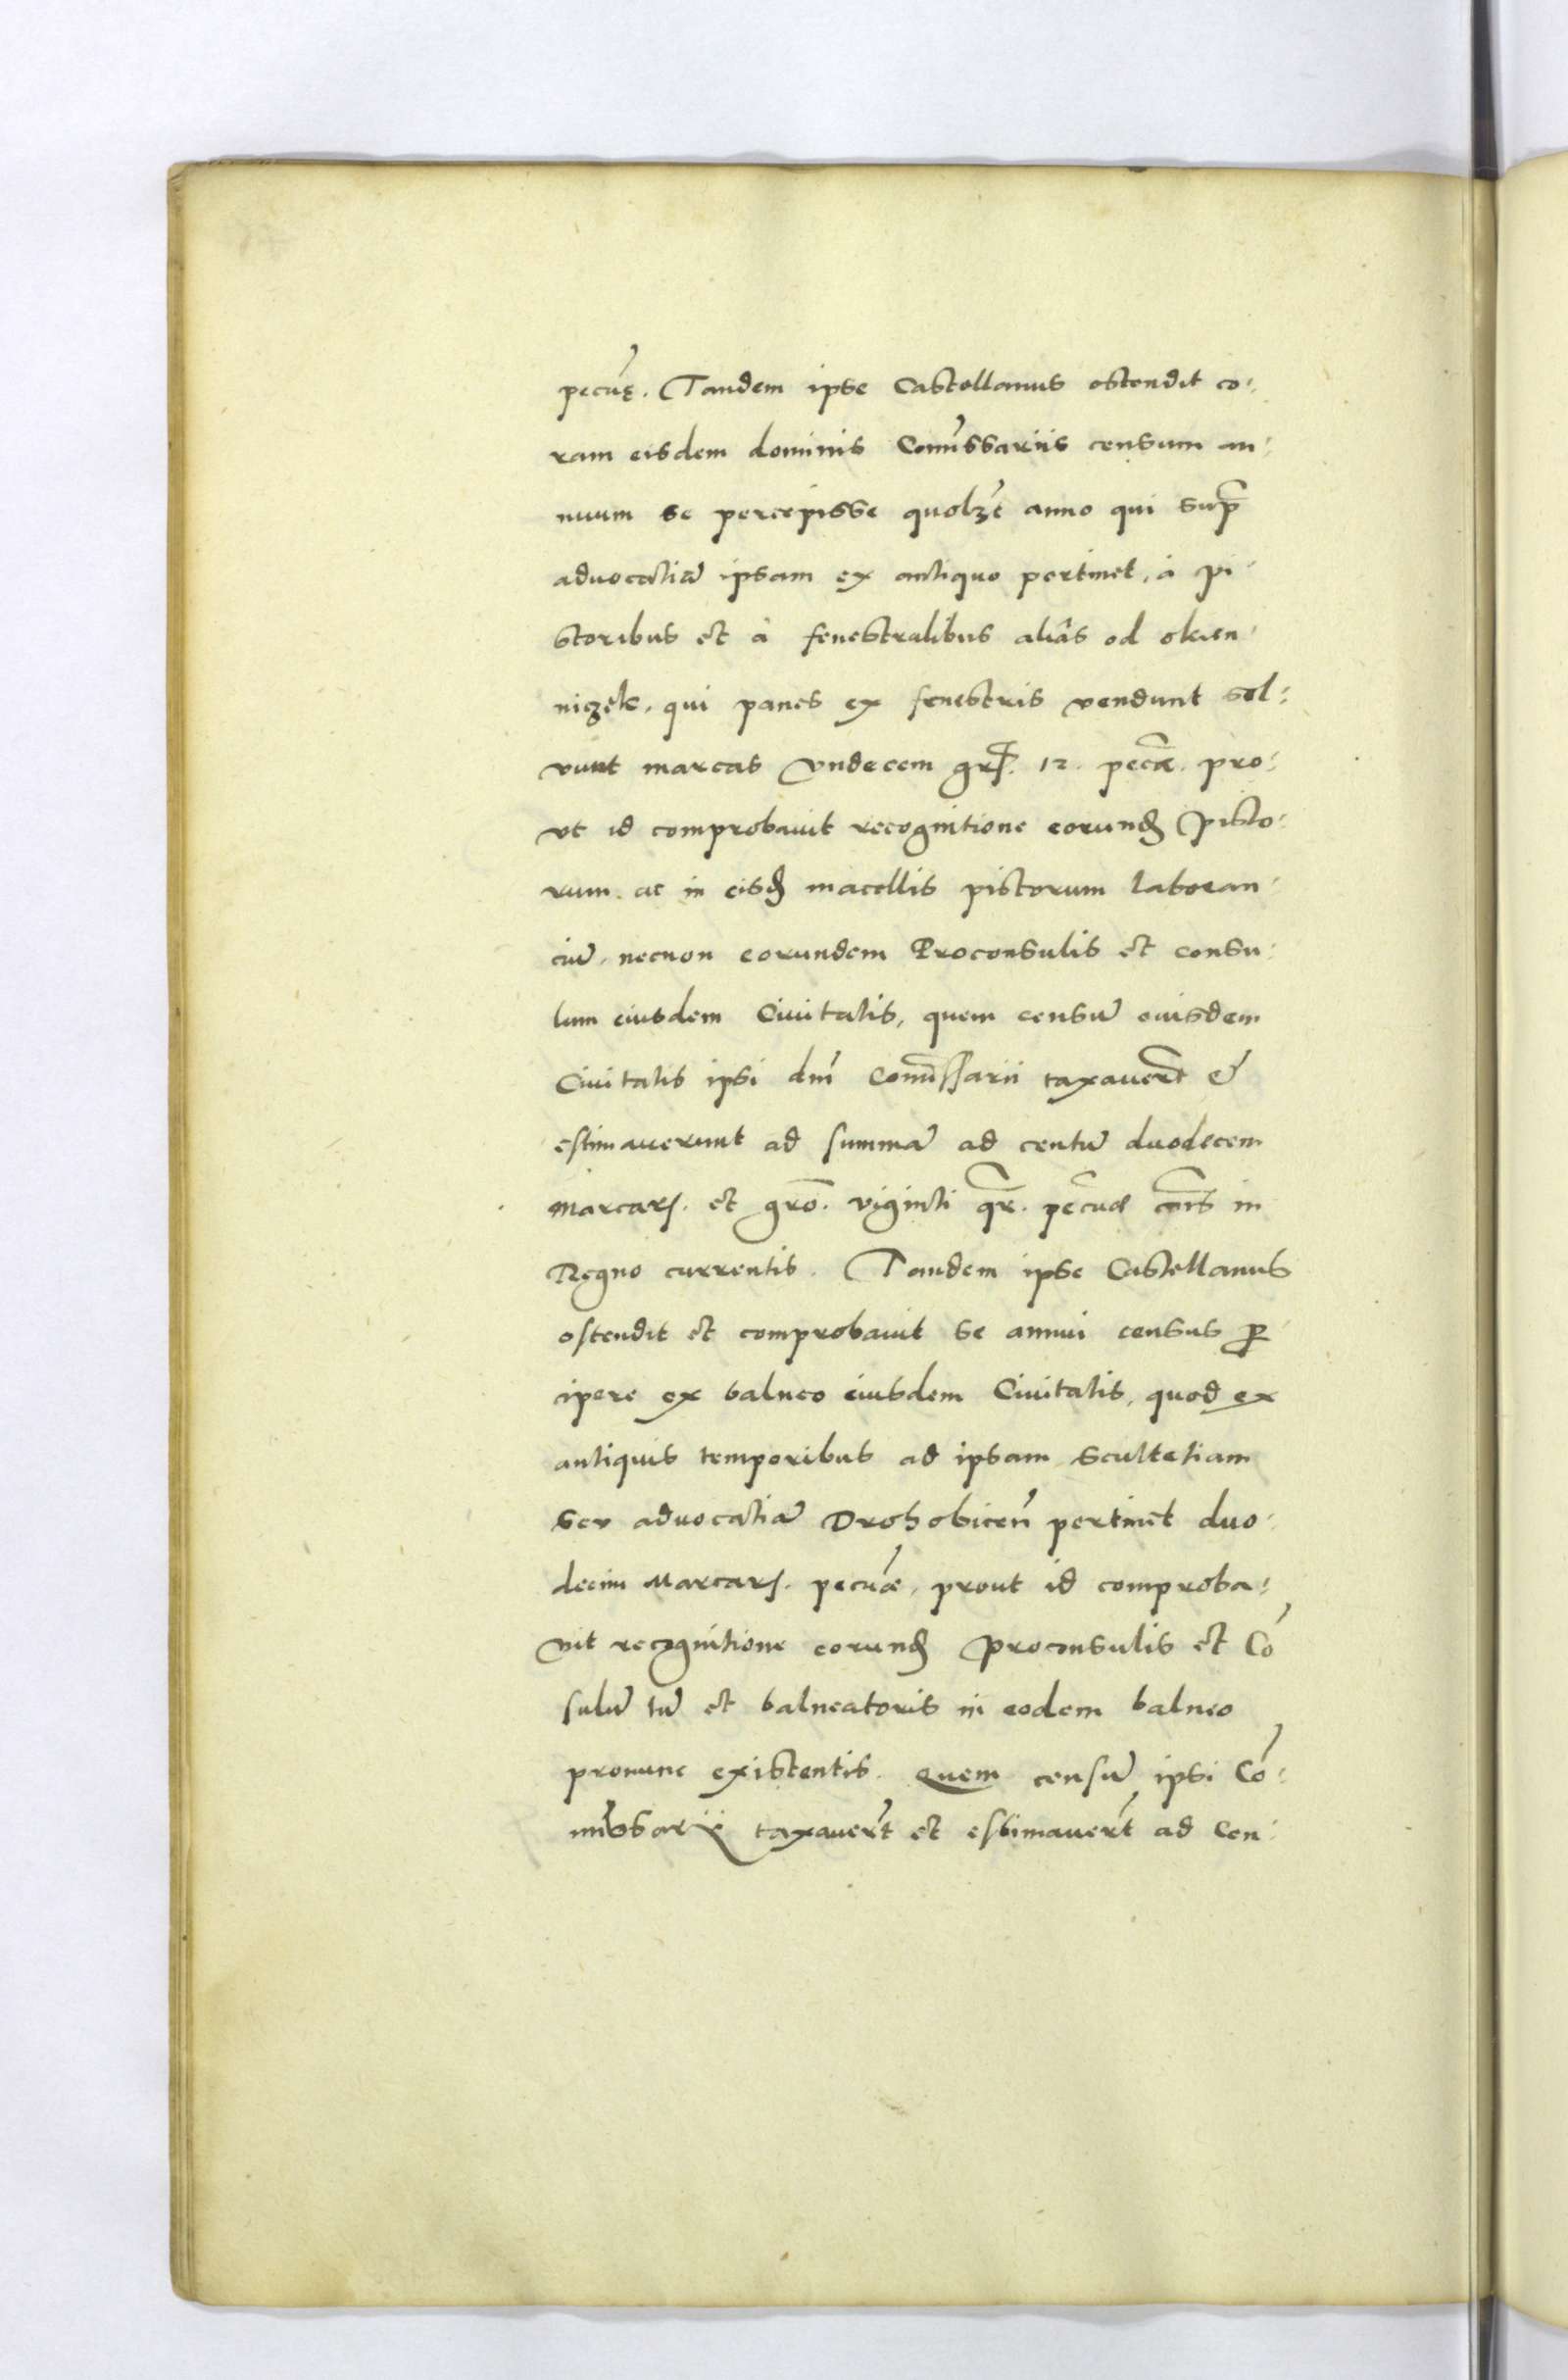 pecu̅ę. Tandem ipse Castellanus ostendit co-
ram eisdem dominis Com̅issariis censum an-
nuum se percepisse quolʒ̅t anno qui sup̅
aduocatia̅ ipsam ex antiquo pertinet, à pi-
storibus et à fenestralibus aliâs od okien-
niczek, qui panes ex fenestris vendunt sol-
vunt marcas vndecem gr̅. 12. pec̅æ. pro-
vt id comprobauit recognitione eorund̅ pisto-
rum. ac in eisd̅ macellis pistorum laboran-
ciu̅, necnon eorundem Proconsulis et consu-
lum eiusdem Ciuitatis, quem censu̅ eiusdem
Ciuitatis ipsi dn̅i Com̅issarii taxaver̅t &
estimauerunt ad summa̅ ad centu̅ duodecem
marcarꝝ. et gro̅. viginti q̅r. pec̅uæ co̅is in
Regno currentis. Tandem ipse Castellanus
ostendit et comprobauit se annui census ꝑ
cipere ex balneo eiusdem Ciuitatis, quod ex
antiquis temporibus ad ipsam scultetiam
seu aduocatia̅ Drohobicen̅ pertinet duo-
decim Marcarꝝ. pecu̅æ, prout id comproba-
uit recognitione eorund̅ proconsulis et Co̅
sulu̅ tu̅ et balneatoris in eodem balneo
pronunc existentis. Quem censu̅ ipsi Co̅-
mi̅ssarii taxauer̅t et estimauer̅t ad Cen-